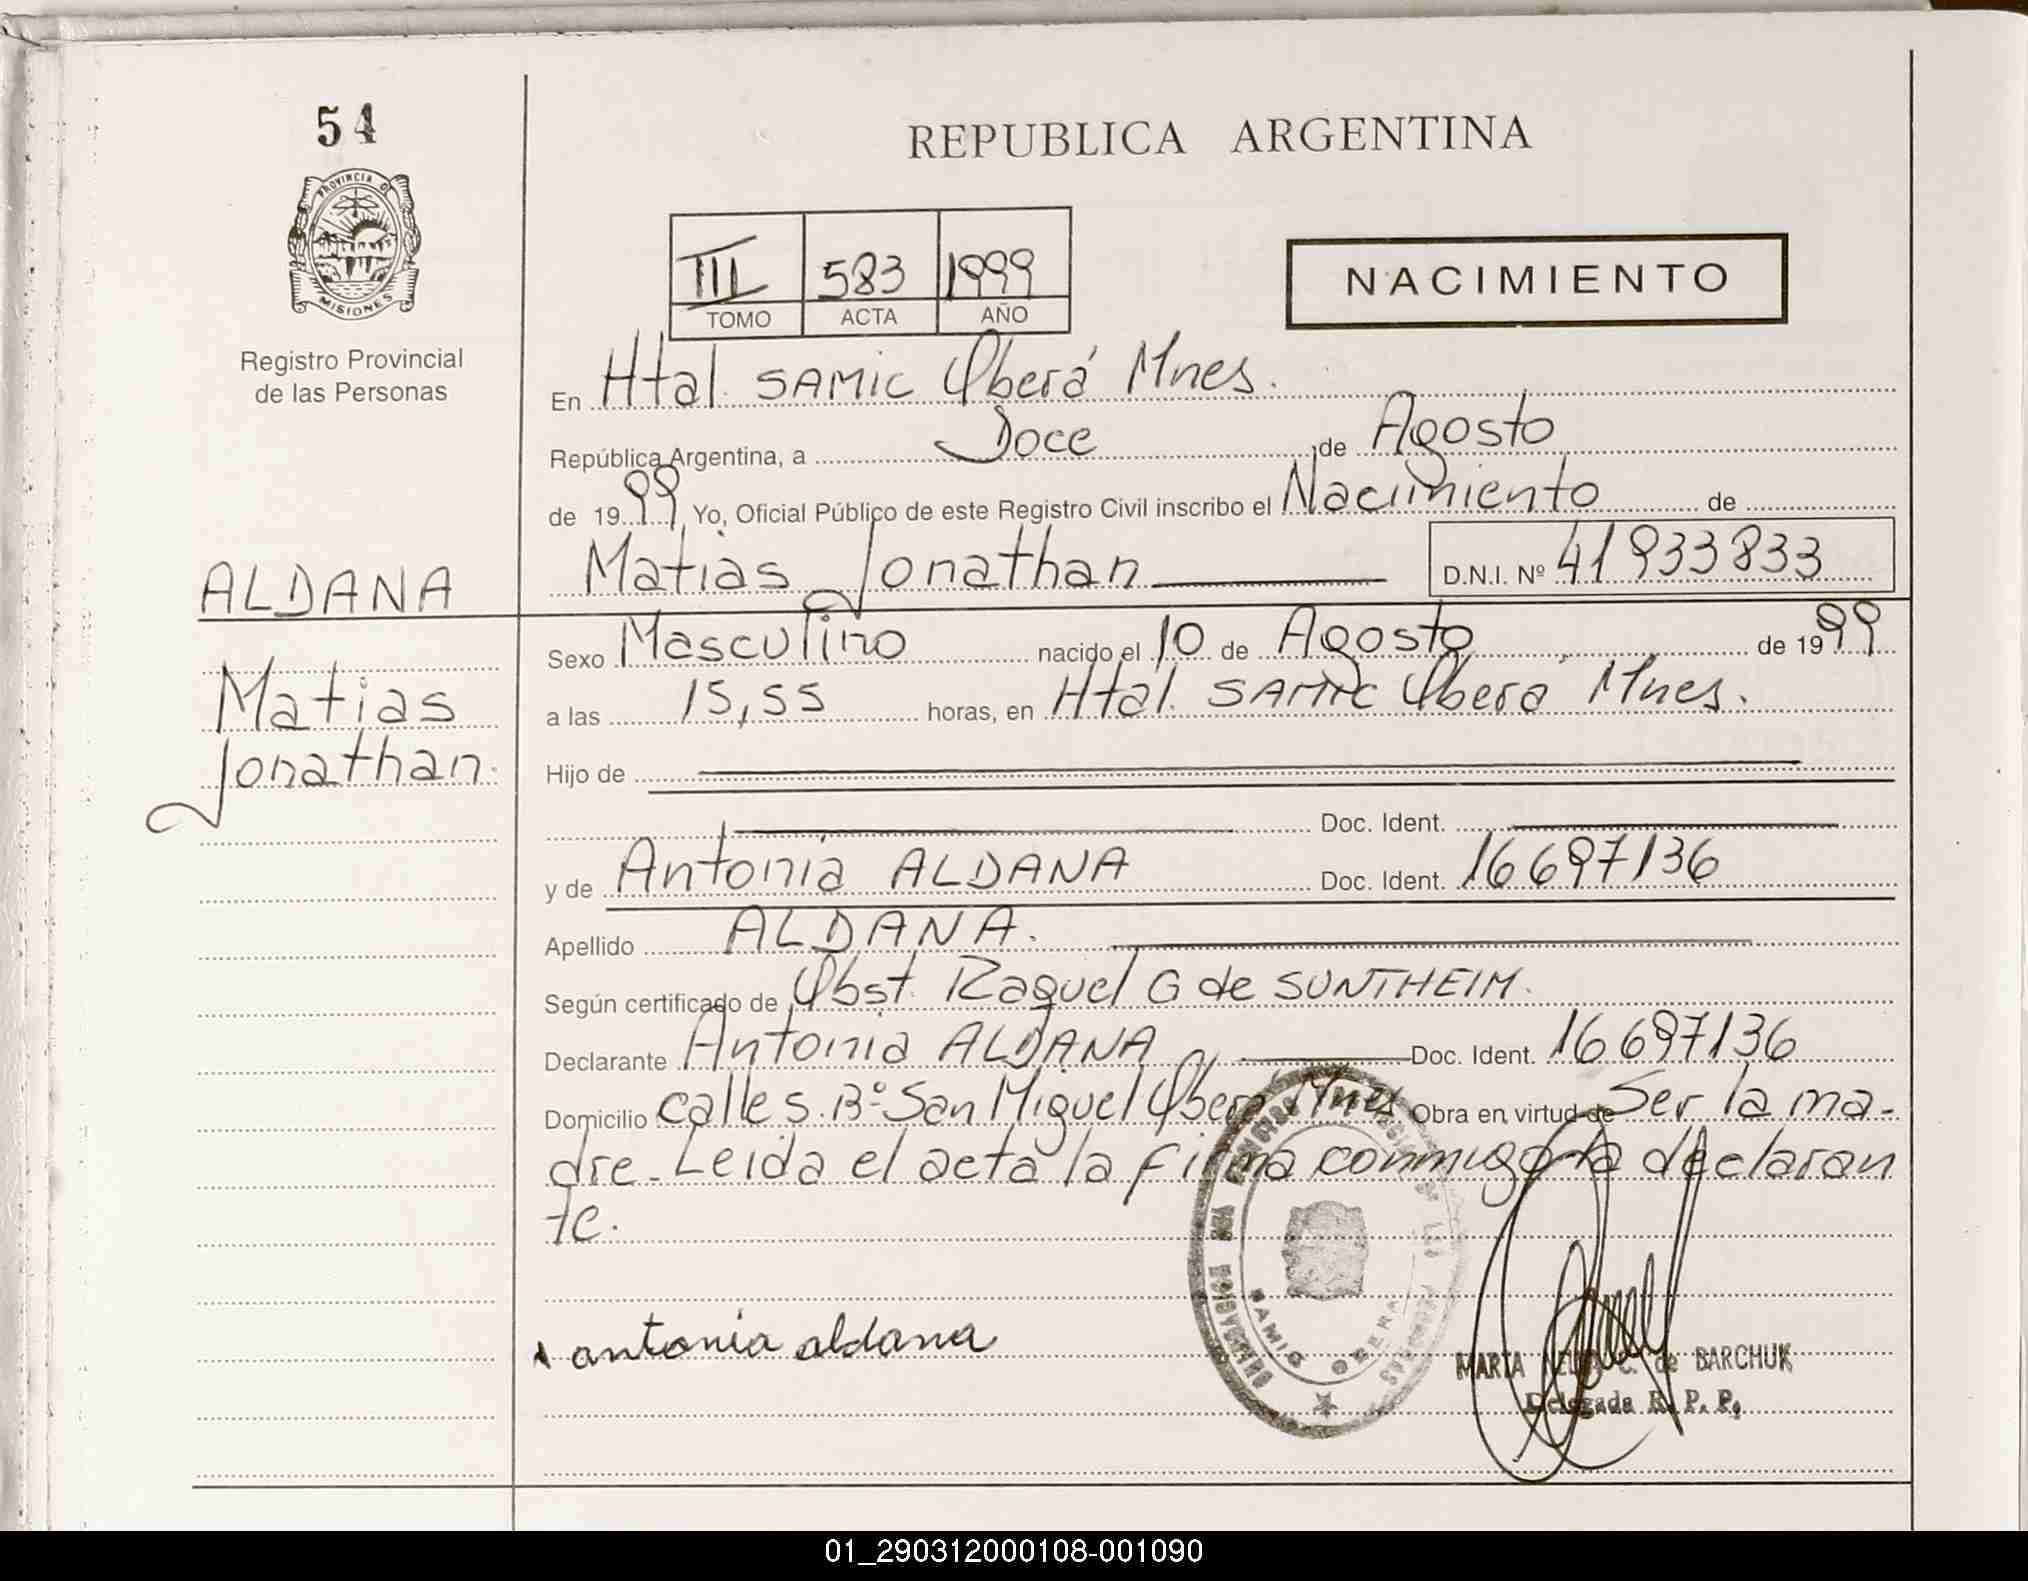 54
PROVINCIA D
MISIONES
Registro Provincial
de las Personas
ALDANA
Matias
Jonathan.
REPUBLICA ARGENTINA
III 583 1999
TOMO ACTA AÑO
NACIMIENTO
En Htal. SAMIC Oberá Mnes.
República Argentina, a Doce de Agosto
de 1999, Yo, Oficial Público de este Registro Civil inscribo el Nacimiento de
Matias Jonathan D.N.I. Nº 41933833
Sexo Masculino nacido el 10 de Agosto de 1999
a las 15,55 horas, en Htal. SAMIC Oberá Mnes.
Hijo de
Doc. Ident.
y de Antonia ALDANA Doc. Ident. 16697136
Apellido ALDANA.
Según certificado de Obst. Raquel G de SUNTHEIM.
Declarante Antonia ALDANA Doc. Ident. 16697136
Domicilio calle s. Bº San Miguel Oberá Mnes Obra en virtud de Ser la ma-
dre. Leida el acta la firma conmigo la declaran
te.
antonia aldana
SAMIC OBERA
MARIA C. de BARCHUK
Delegada R. P. P.
01_290312000108-001090